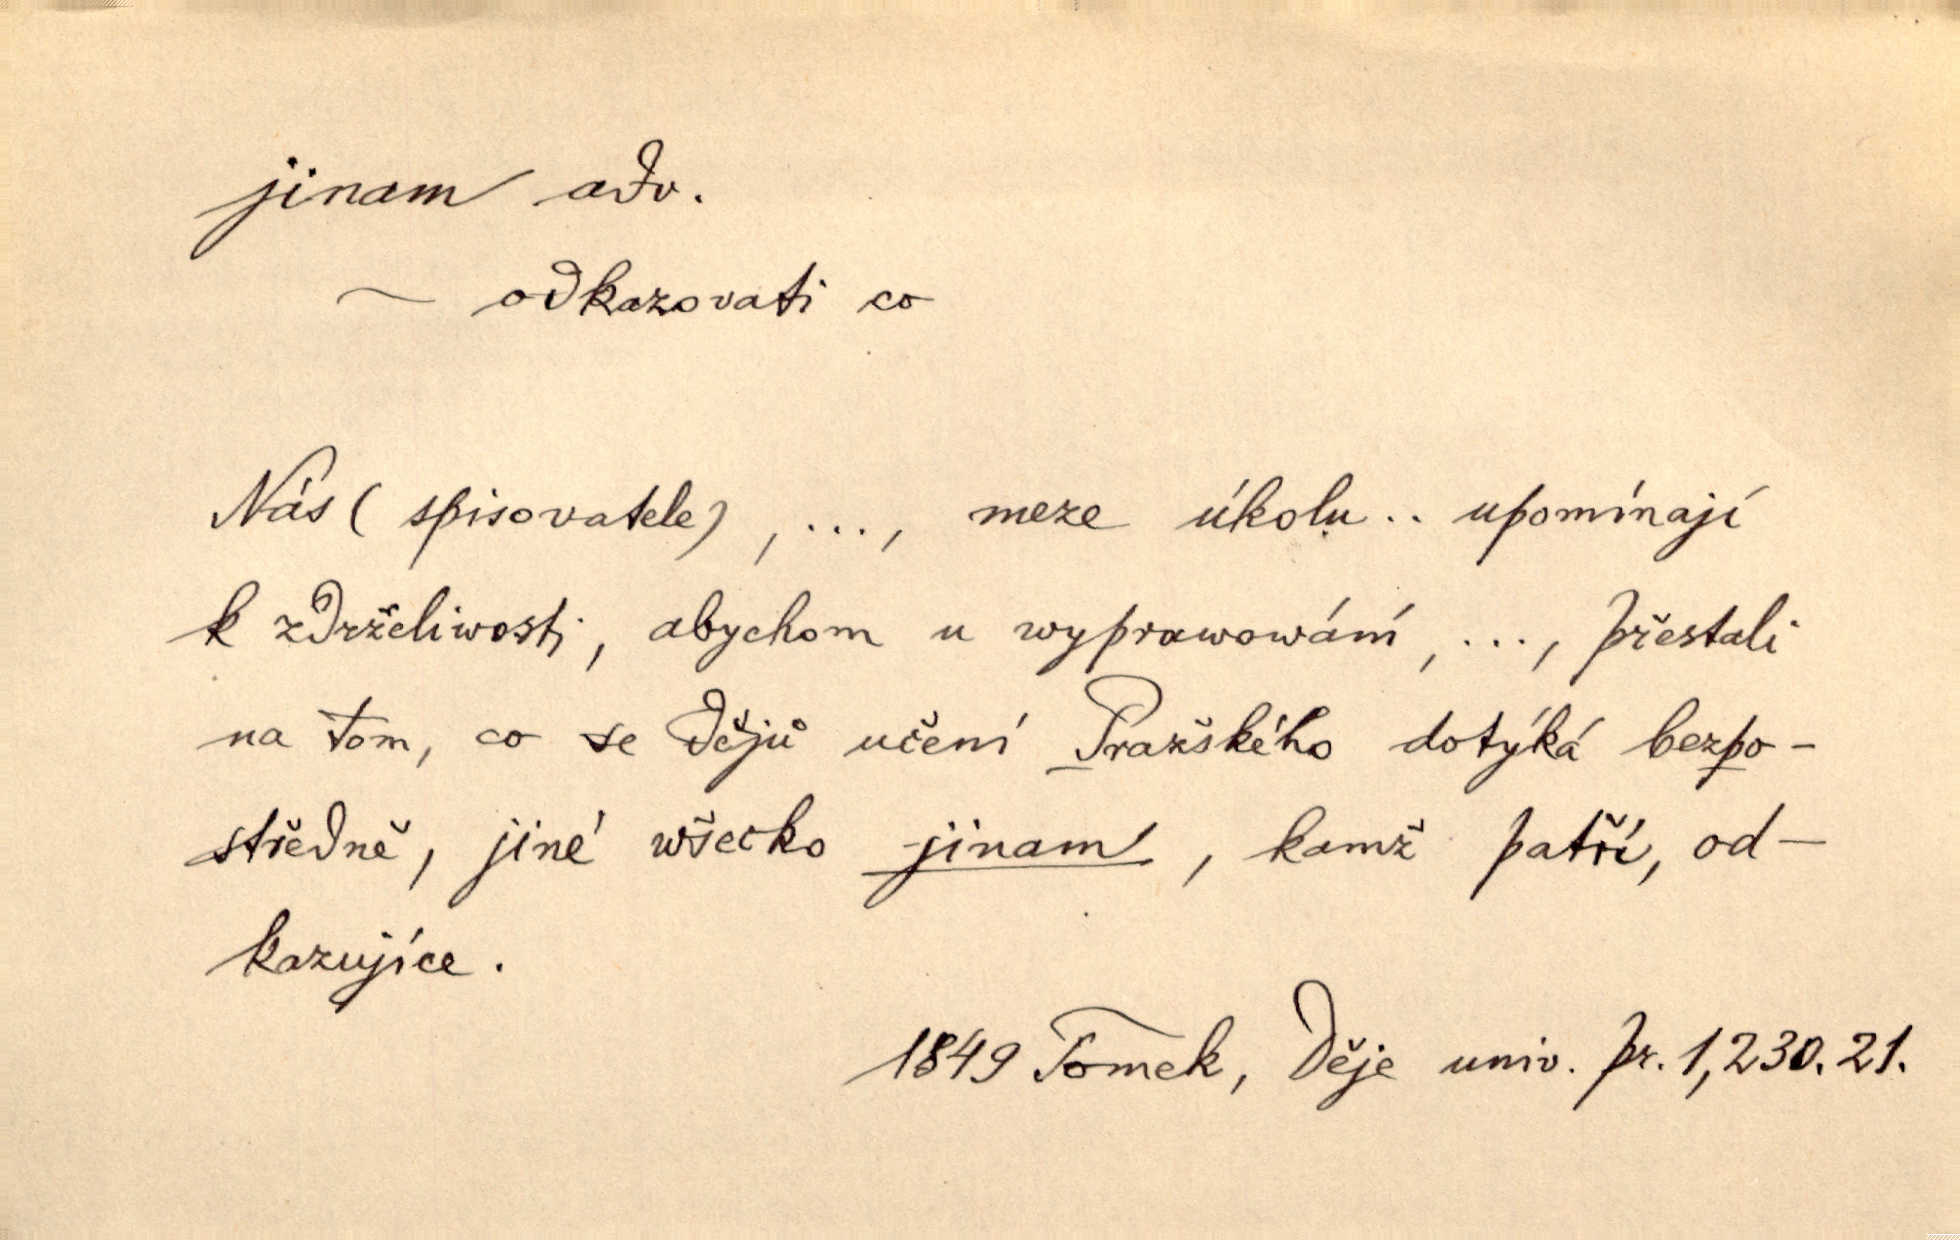 jinam adv.
~ odkazovati co
Nás (spisovatele), ..., meze úkolu .. upomínají
k zdrželiwosti, abychom u wyprawowání, ..., přestali
na tom, co se dějů učení Pražského dotýká bezpo-
středně, jiné wšecko jinam, kamž patří, od-
kazujíce.
1849 Tomek, Děje univ. pr. 1, 230. 21.